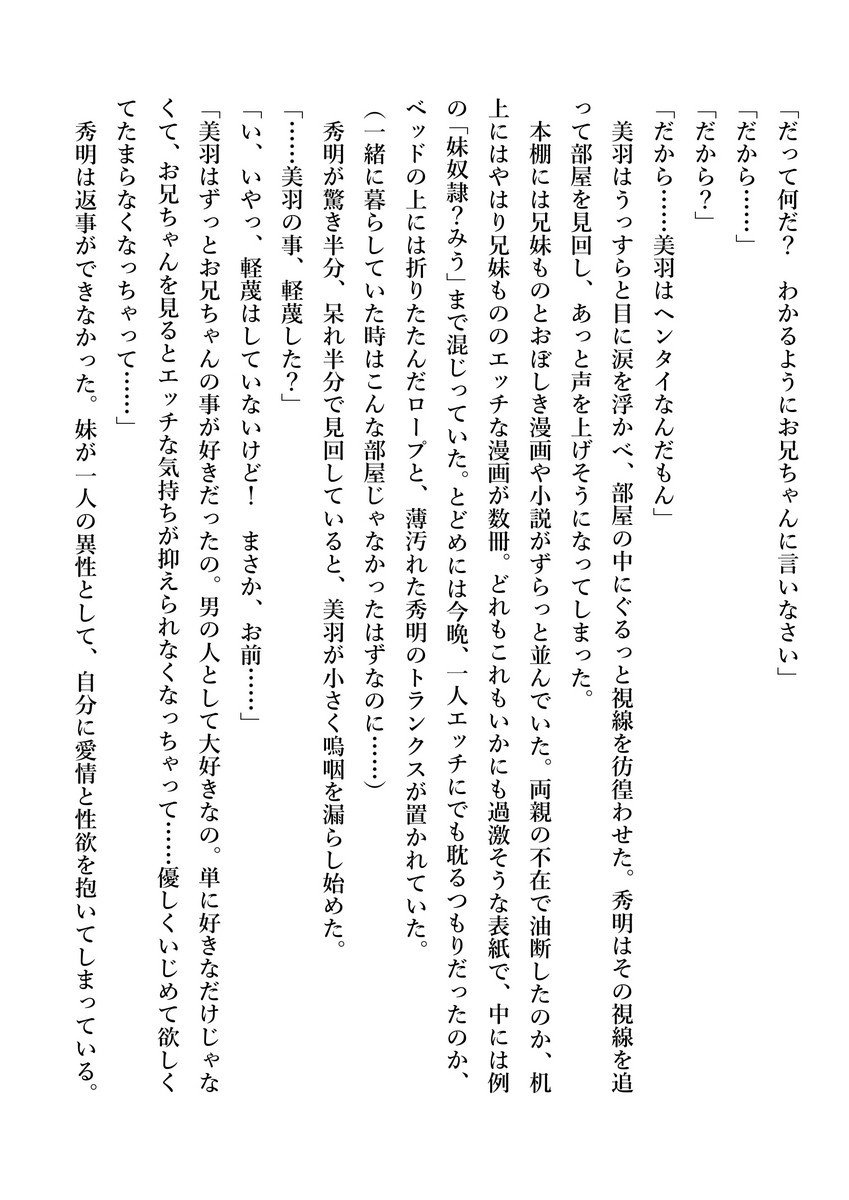 「だって何だ？　わかるようにお兄ちゃんに言いなさい」
「だから……」
「だから？」
「だから……美羽はヘンタイなんだもん」
　美羽はうっすらと目に涙を浮かべ、部屋の中にぐるっと視線を彷徨わせた。秀明はその視線を追
って部屋を見回し、あっと声を上げそうになってしまった。
　本棚には兄妹ものとおぼしき漫画や小説がずらっと並んでいた。両親の不在で油断したのか、机
上にはやはり兄妹もののエッチな漫画が数冊。どれもこれもいかにも過激そうな表紙で、中には例
の「妹奴隷？みう」まで混じっていた。とどめには今晩、一人エッチにでも耽るつもりだったのか、
ベッドの上には折りたたんだロープと、薄汚れた秀明のトランクスが置かれていた。
（一緒に暮らしていた時はこんな部屋じゃなかったはずなのに……）
　秀明が驚き半分、呆れ半分で見回していると、美羽が小さく嗚咽を漏らし始めた。
「……美羽の事、軽蔑した？」
「い、いやっ、軽蔑はしていないけど！　まさか、お前……」
「美羽はずっとお兄ちゃんの事が好きだったの。男の人として大好きなの。単に好きなだけじゃな
くて、お兄ちゃんを見るとエッチな気持ちが抑えられなくなっちゃって……優しくいじめて欲しく
てたまらなくなっちゃって……」
　秀明は返事ができなかった。妹が一人の異性として、自分に愛情と性欲を抱いてしまっている。